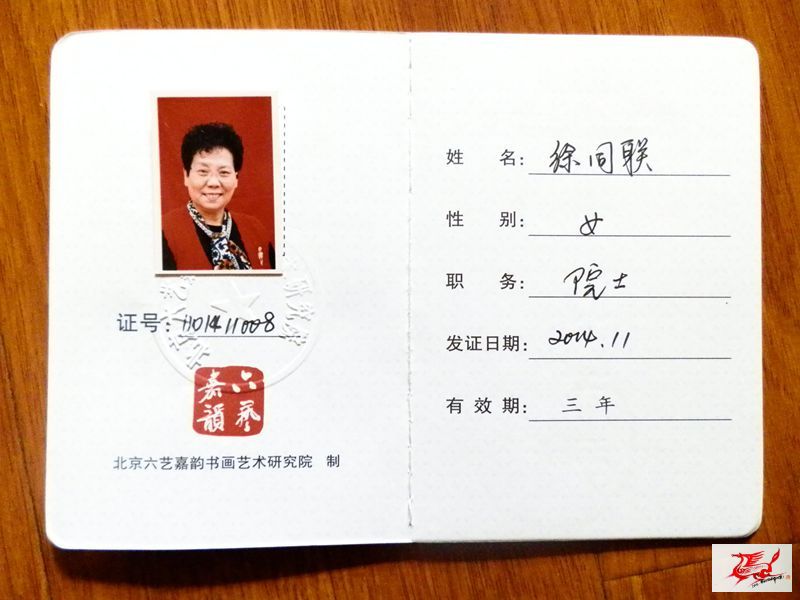 证号：1101411008
六艺
嘉韵
北京六艺嘉韵书画艺术研究院 制
姓 名：徐同联
性 别：女
职 务：院士
发证日期：2014.11
有 效 期：三年